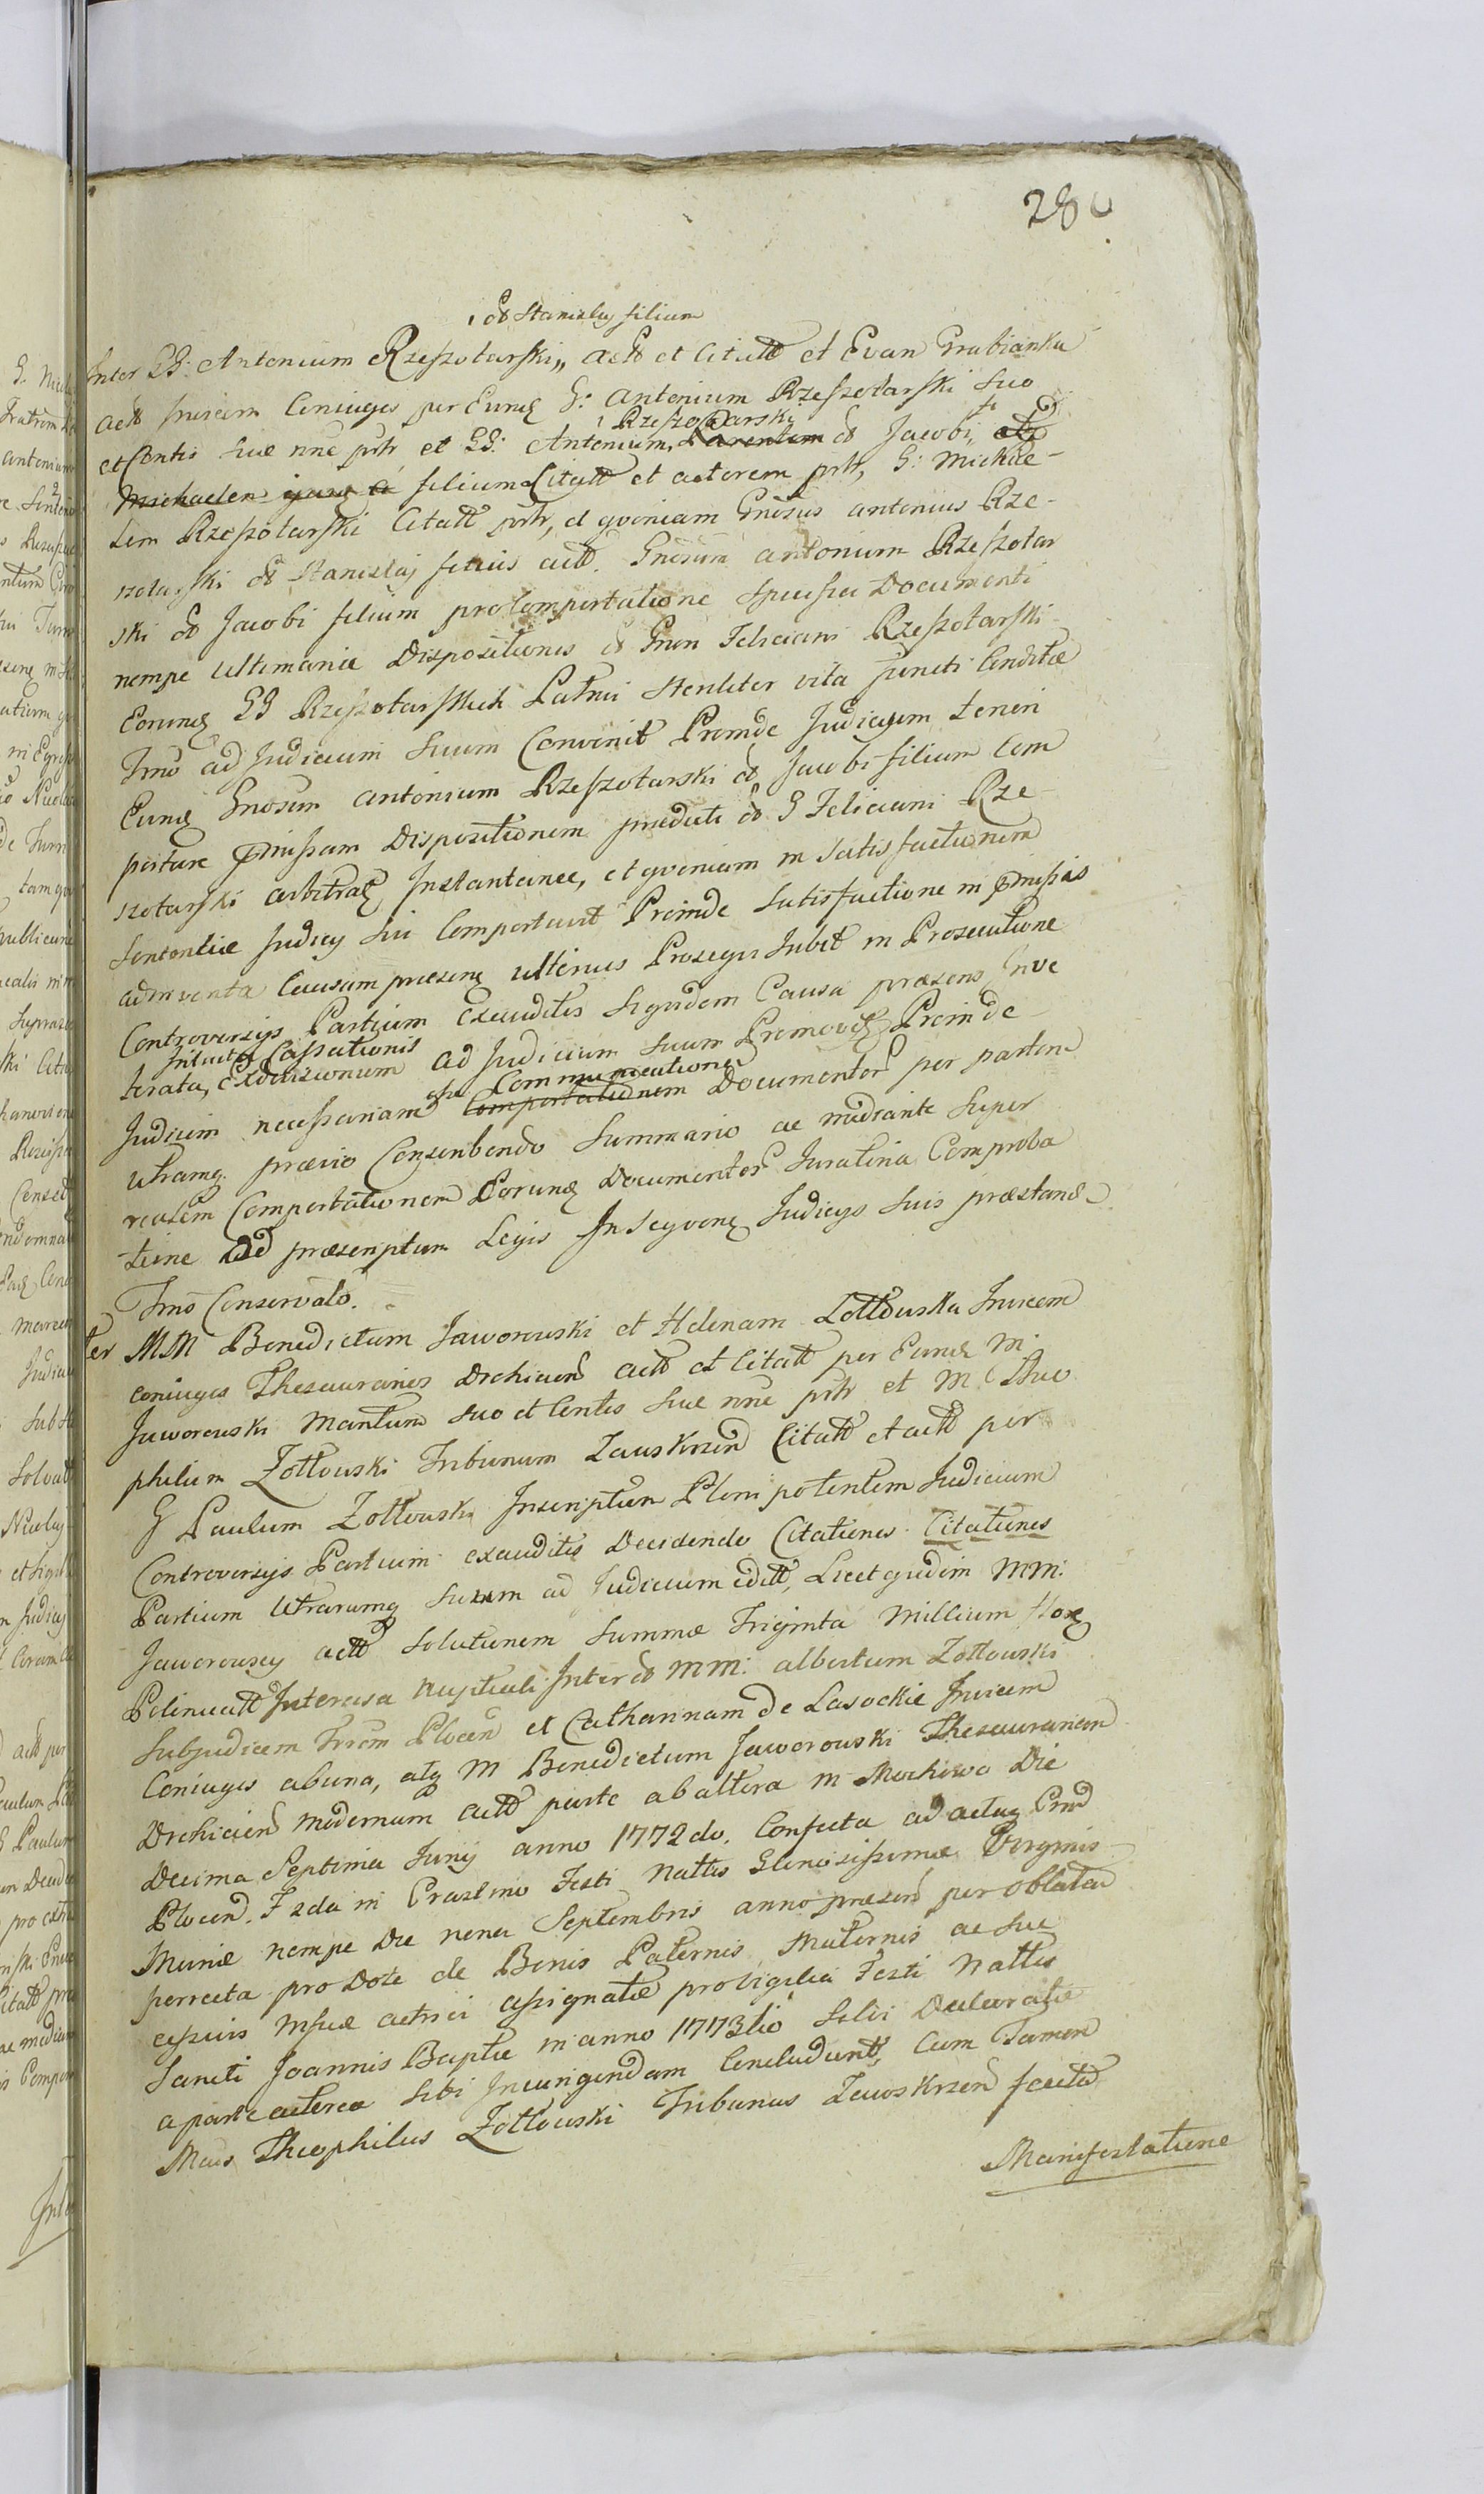 280
, ol Stanislai filium
Inter GG: Antonium Rzeszotarski,, actt et Citatt et Evam Grabianka
actt Invicem Coniuges per Eund G: Antonium Rzeszotarski suo
et Contis suae nne prtt et GG: Antonium, Rzeszotarski Parentem ol Jacobi,
Michaelem filium Citatt et actorem prtt, G: Michae-
lem Rzeszotarski Citatt prtt, et qvoniam Gnosus Antonius Rze-
szotarski ol Stanislai filius actt. Gnosum Antonium Rzeszotar
ski ol Jacobi filium pro Comportatione specifici Documenti
nempe Ultimariae Dispositionis ol Gnon Feliciani Rzeszotarski
Eorund GG Rzeszotarskich Patrui steriliter vita functi Conditae
Imo ad Judicium suum Convenit Proinde Judicium teneri
Eund Gnosum Antonium Rzeszotarski ol Jacobi filium Com
portare pmissam Dispositionem praedicti ol G Feliciani Rze-
szotarski arbitratt Instantanee, et qvoniam in satisfactionem
Sententiae Judicij sui Comportavit Proinde Satisfactione in pmissis
adinventa Causam praesent ulterius Proseqvi Jubet in Prosecutione
Controversijs Partium Exauditis Siqvidem Causa praesens Inve
terata, Intuitu Cassationis Exdivisionum ad Judicium suum Promovetr Proinde
Judicium necessariam esse Communicationem Comportationem Documentor per partem
utramq praevio Conscribendo Summario ac mediante super
realem Comportationem Eorund Documentor Juratina Comproba
tione ad praescriptum Legis In Seqvent Judicijs suis praestand
Imo Conservato.
ter MM Benedictum Jaworowski et Helenam Zołtowska Invicem
coniuges Thesaurarios Orchicien actt et Citatt per Eund M
Jaworowski Maritum suo et Contis suae nne prtt et M Theo
philum Zołtowski Tribunum Zawskrzen Citatt et actt per
G Paulum Zołtowski Inscriptum Plenipotentem Judicium
Controversijs Partium exauditis Decidendo Citationes Citationes
Partium Utrarumq suum ad Judicium editt, Licet qvidem MM:
Jaworowscy actt solutionem Summae Triginta Millium flor
Polinicalt Intercisa Nuptiali Inter ol MM: Albertum Zołtowski
Subjudicem Trrem Plocen et Catharinam de Lasockie Invicem
Coniuges ab una, atq M Benedictum Jaworowski Thesaurarium
Orchicien modernum actt parte ab altera in Mochowo Die
Decima Septima Junij anno 1772do. Confecta ad acta Crnd
Plocen. F 2da in Crastino Festi Nattis Gloriosissimae Virginis
Mariae nempe Die nona Septembris anno praesen per Oblatam
porrecta pro Dote de Bonis Paternis Maternis ac suc
cessivis Ipsae actrici assignatae pro vigilia Festi Nattis
Sancti Joannis Baptae in anno 1773tio Solvi Declaratae
a parte actorea sibi Iniungendam Concludunt, Cum Tamen
Mcus Theophilus Zołtowski Tribunus Zawskrzen facta
Manifestatione